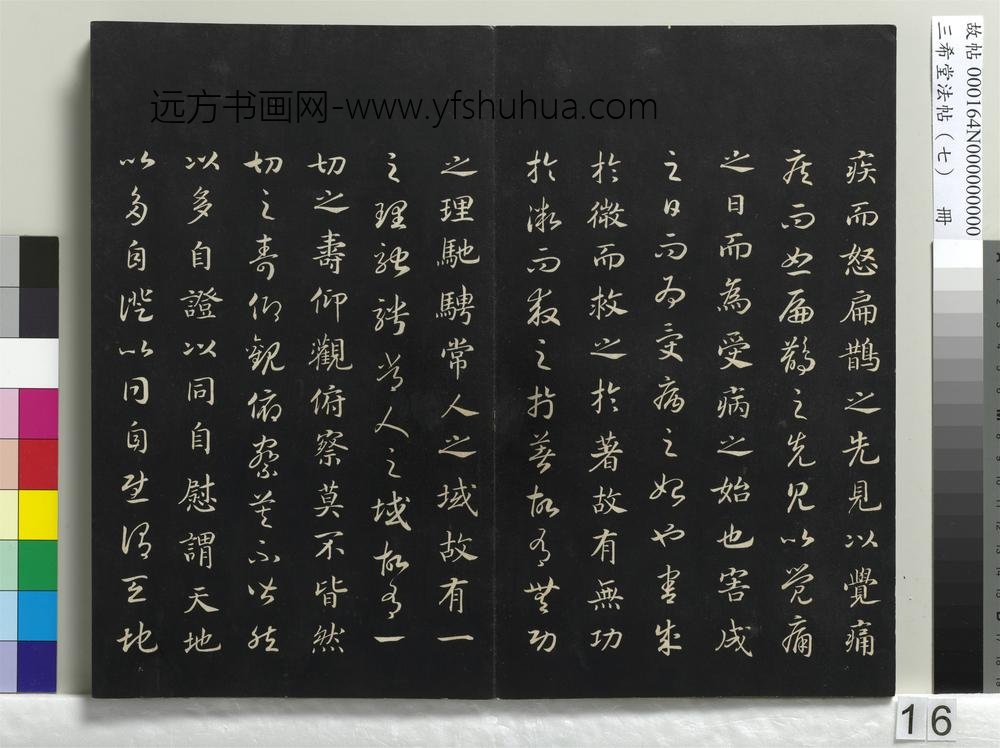 疾而怒扁鵲之先見以覺痛
疾而怒扁鵲之先見以覺痛
之日而為受病之始也害成
之日而為受病之始也害成
於微而救之於著故有無功
於微而救之於著故有無功
之理馳騁常人之域故有一
之理馳騁常人之域故有一
切之壽仰觀俯察莫不皆然
切之壽仰觀俯察莫不皆然
以多自證以同自慰謂天地
以多自證以同自慰謂天地
远方书画网-www.yfshuhua.com
故帖 000164N000000000
三希堂法帖(七) 冊
16